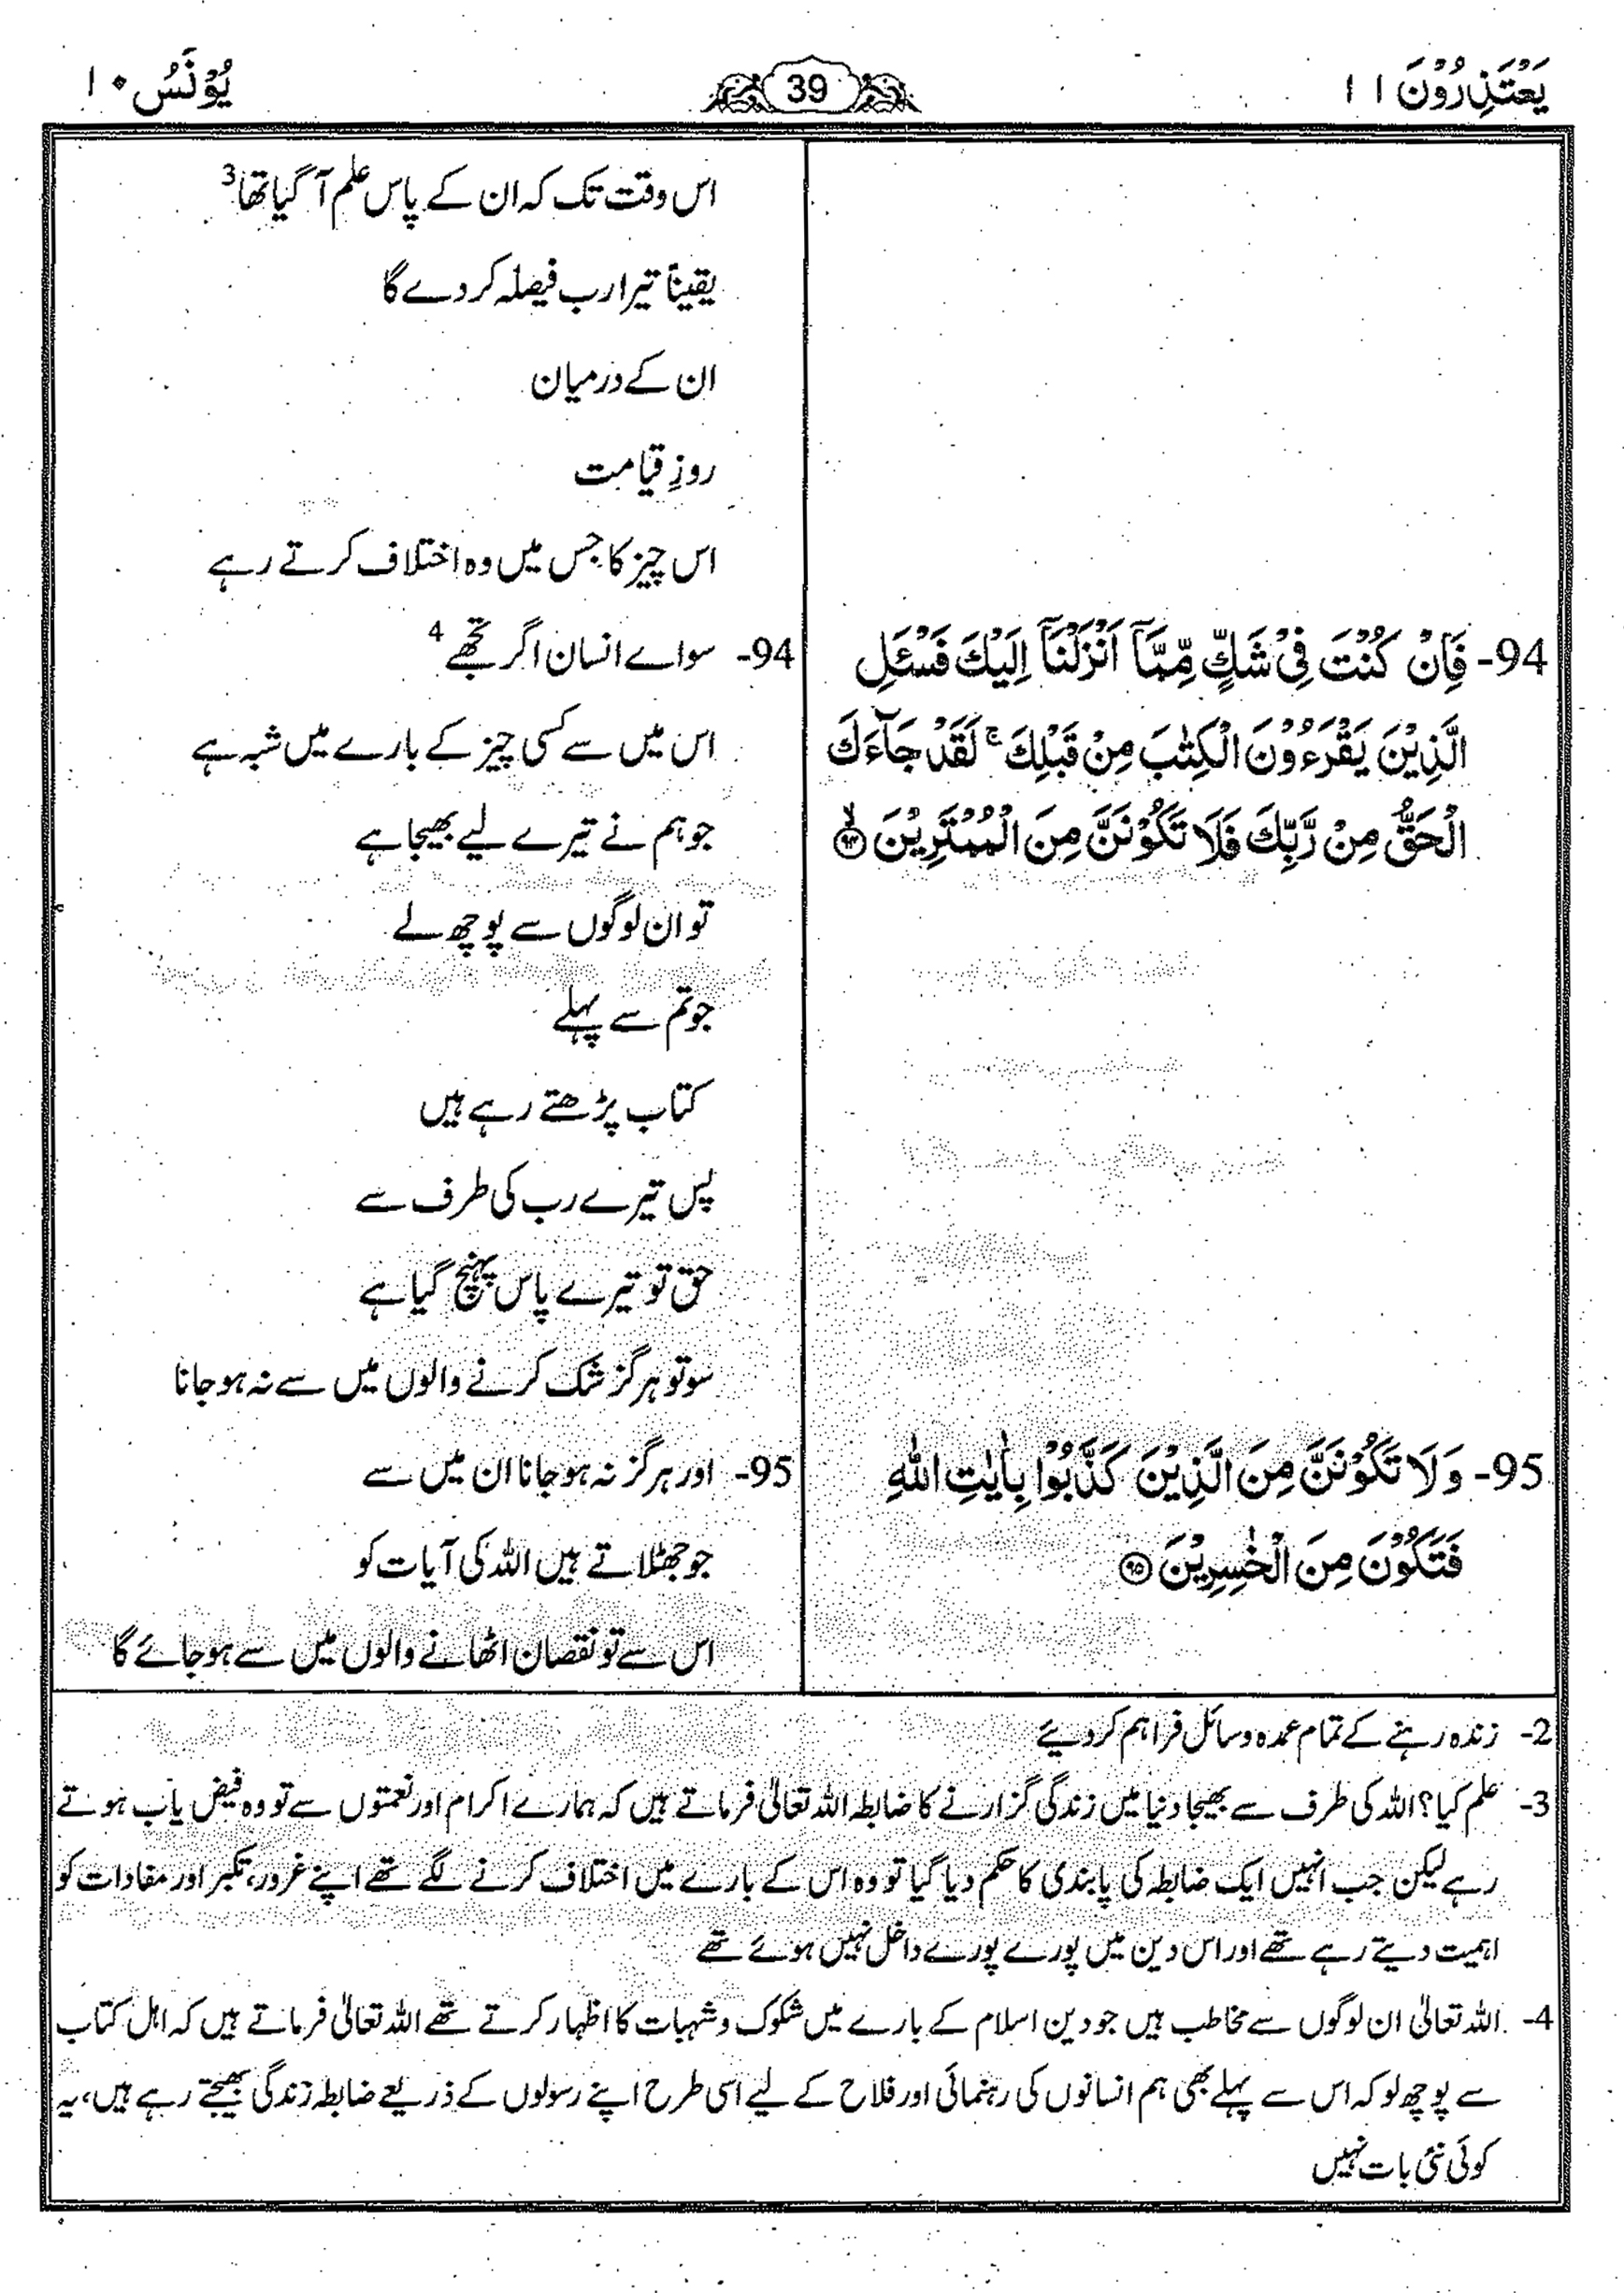 یَعْتَذِرُوْنَ ۱۱
39
یُوْنَسُ ۱۰
اس وقت تک کہ ان کے پاس علم آ گیا تھا3
یقیناً تیرا رب فیصلہ کر دے گا
ان کے درمیان
روزِ قیامت
اس چیز کا جس میں وہ اختلاف کرتے رہے
94- فَاِنْ كُنْتَ فِیْ شَكٍّ مِّمَّاۤ اَنْزَلْنَاۤ اِلَیْكَ فَسْـَٔلِ
الَّذِیْنَ یَقْرَءُوْنَ الْكِتٰبَ مِنْ قَبْلِكَ ۚ لَقَدْ جَآءَكَ
الْحَقُّ مِنْ رَّبِّكَ فَلَا تَكُوْنَنَّ مِنَ الْمُمْتَرِیْنَ ۙ۹۴
94- سو اے انسان اگر تجھے 4
اس میں سے کسی چیز کے بارے میں شبہ ہے
جو ہم نے تیرے لیے بھیجا ہے
تو ان لوگوں سے پوچھ لے
جو تم سے پہلے
کتاب پڑھتے رہے ہیں
پس تیرے رب کی طرف سے
حق تو تیرے پاس پہنچ گیا ہے
سو تو ہرگز شک کرنے والوں میں سے نہ ہو جانا
95- وَلَا تَكُوْنَنَّ مِنَ الَّذِیْنَ كَذَّبُوْا بِاٰیٰتِ اللّٰهِ
فَتَكُوْنَ مِنَ الْخٰسِرِیْنَ ۹۵
95- اور ہرگز نہ ہو جانا ان میں سے
جو جھٹلاتے ہیں اللہ کی آیات کو
اس سے تو نقصان اٹھانے والوں میں سے ہو جائے گا
2- زندہ رہنے کے تمام عمدہ وسائل فراہم کر دیئے
3- علم کیا؟ اللہ کی طرف سے بھیجا دنیا میں زندگی گزارنے کا ضابطہ اللہ تعالیٰ فرماتے ہیں کہ ہمارے اکرام اور نعمتوں سے تو وہ فیض یاب ہوتے
رہے لیکن جب انہیں ایک ضابطہ کی پابندی کا حکم دیا گیا تو وہ اس کے بارے میں اختلاف کرنے لگے تھے اپنے غرور، تکبر اور مفادات کو
اہمیت دیتے رہے تھے اور اس دین میں پورے پورے داخل نہیں ہوئے تھے
4- اللہ تعالیٰ ان لوگوں سے مخاطب ہیں جو دین اسلام کے بارے میں شکوک و شبہات کا اظہار کرتے تھے اللہ تعالیٰ فرماتے ہیں کہ اہل کتاب
سے پوچھ لو کہ اس سے پہلے بھی ہم انسانوں کی رہنمائی اور فلاح کے لیے اسی طرح اپنے رسولوں کے ذریعے ضابطہ زندگی بھیجتے رہے ہیں، یہ
کوئی نئی بات نہیں